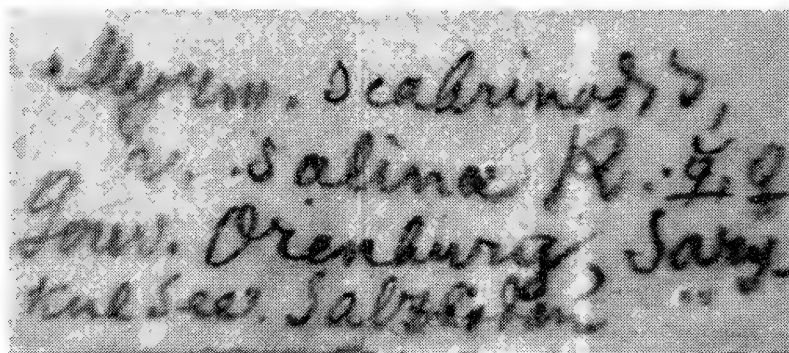 Myrm. scabrinodis,
v. salina R. ☿, ♀
Gouv. Orenburg, Sary
Kul See.